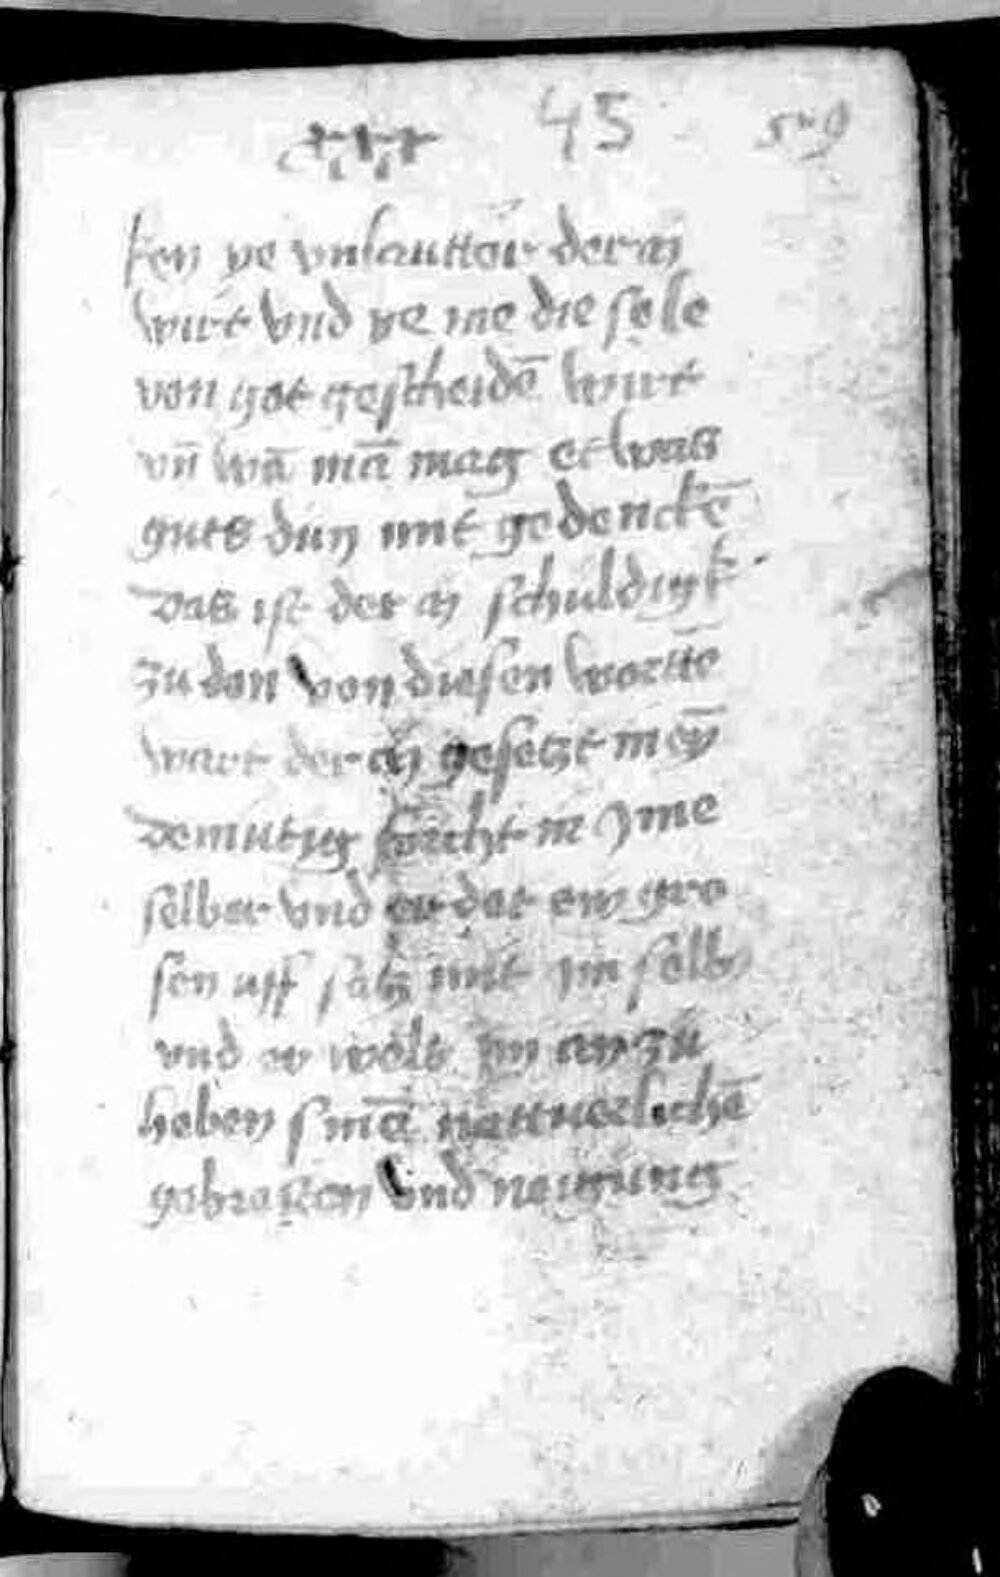 xxx 45 549
ken ye vnlautter der m
wirt vnd ye me die sele
von got gescheidē wirt
vn̄ wā mā mag etwas
guts dun mit gedenckē
das ist der m schuldigk
zu don von diesen wortē
wart der m gesetzt in eȳ
demutig forcht in yme
selber vnd er det ein gro
sen uff satz mit im selb
vnd er wolt im an zu
heben sinē natturlichē
gebresten vnd neigung